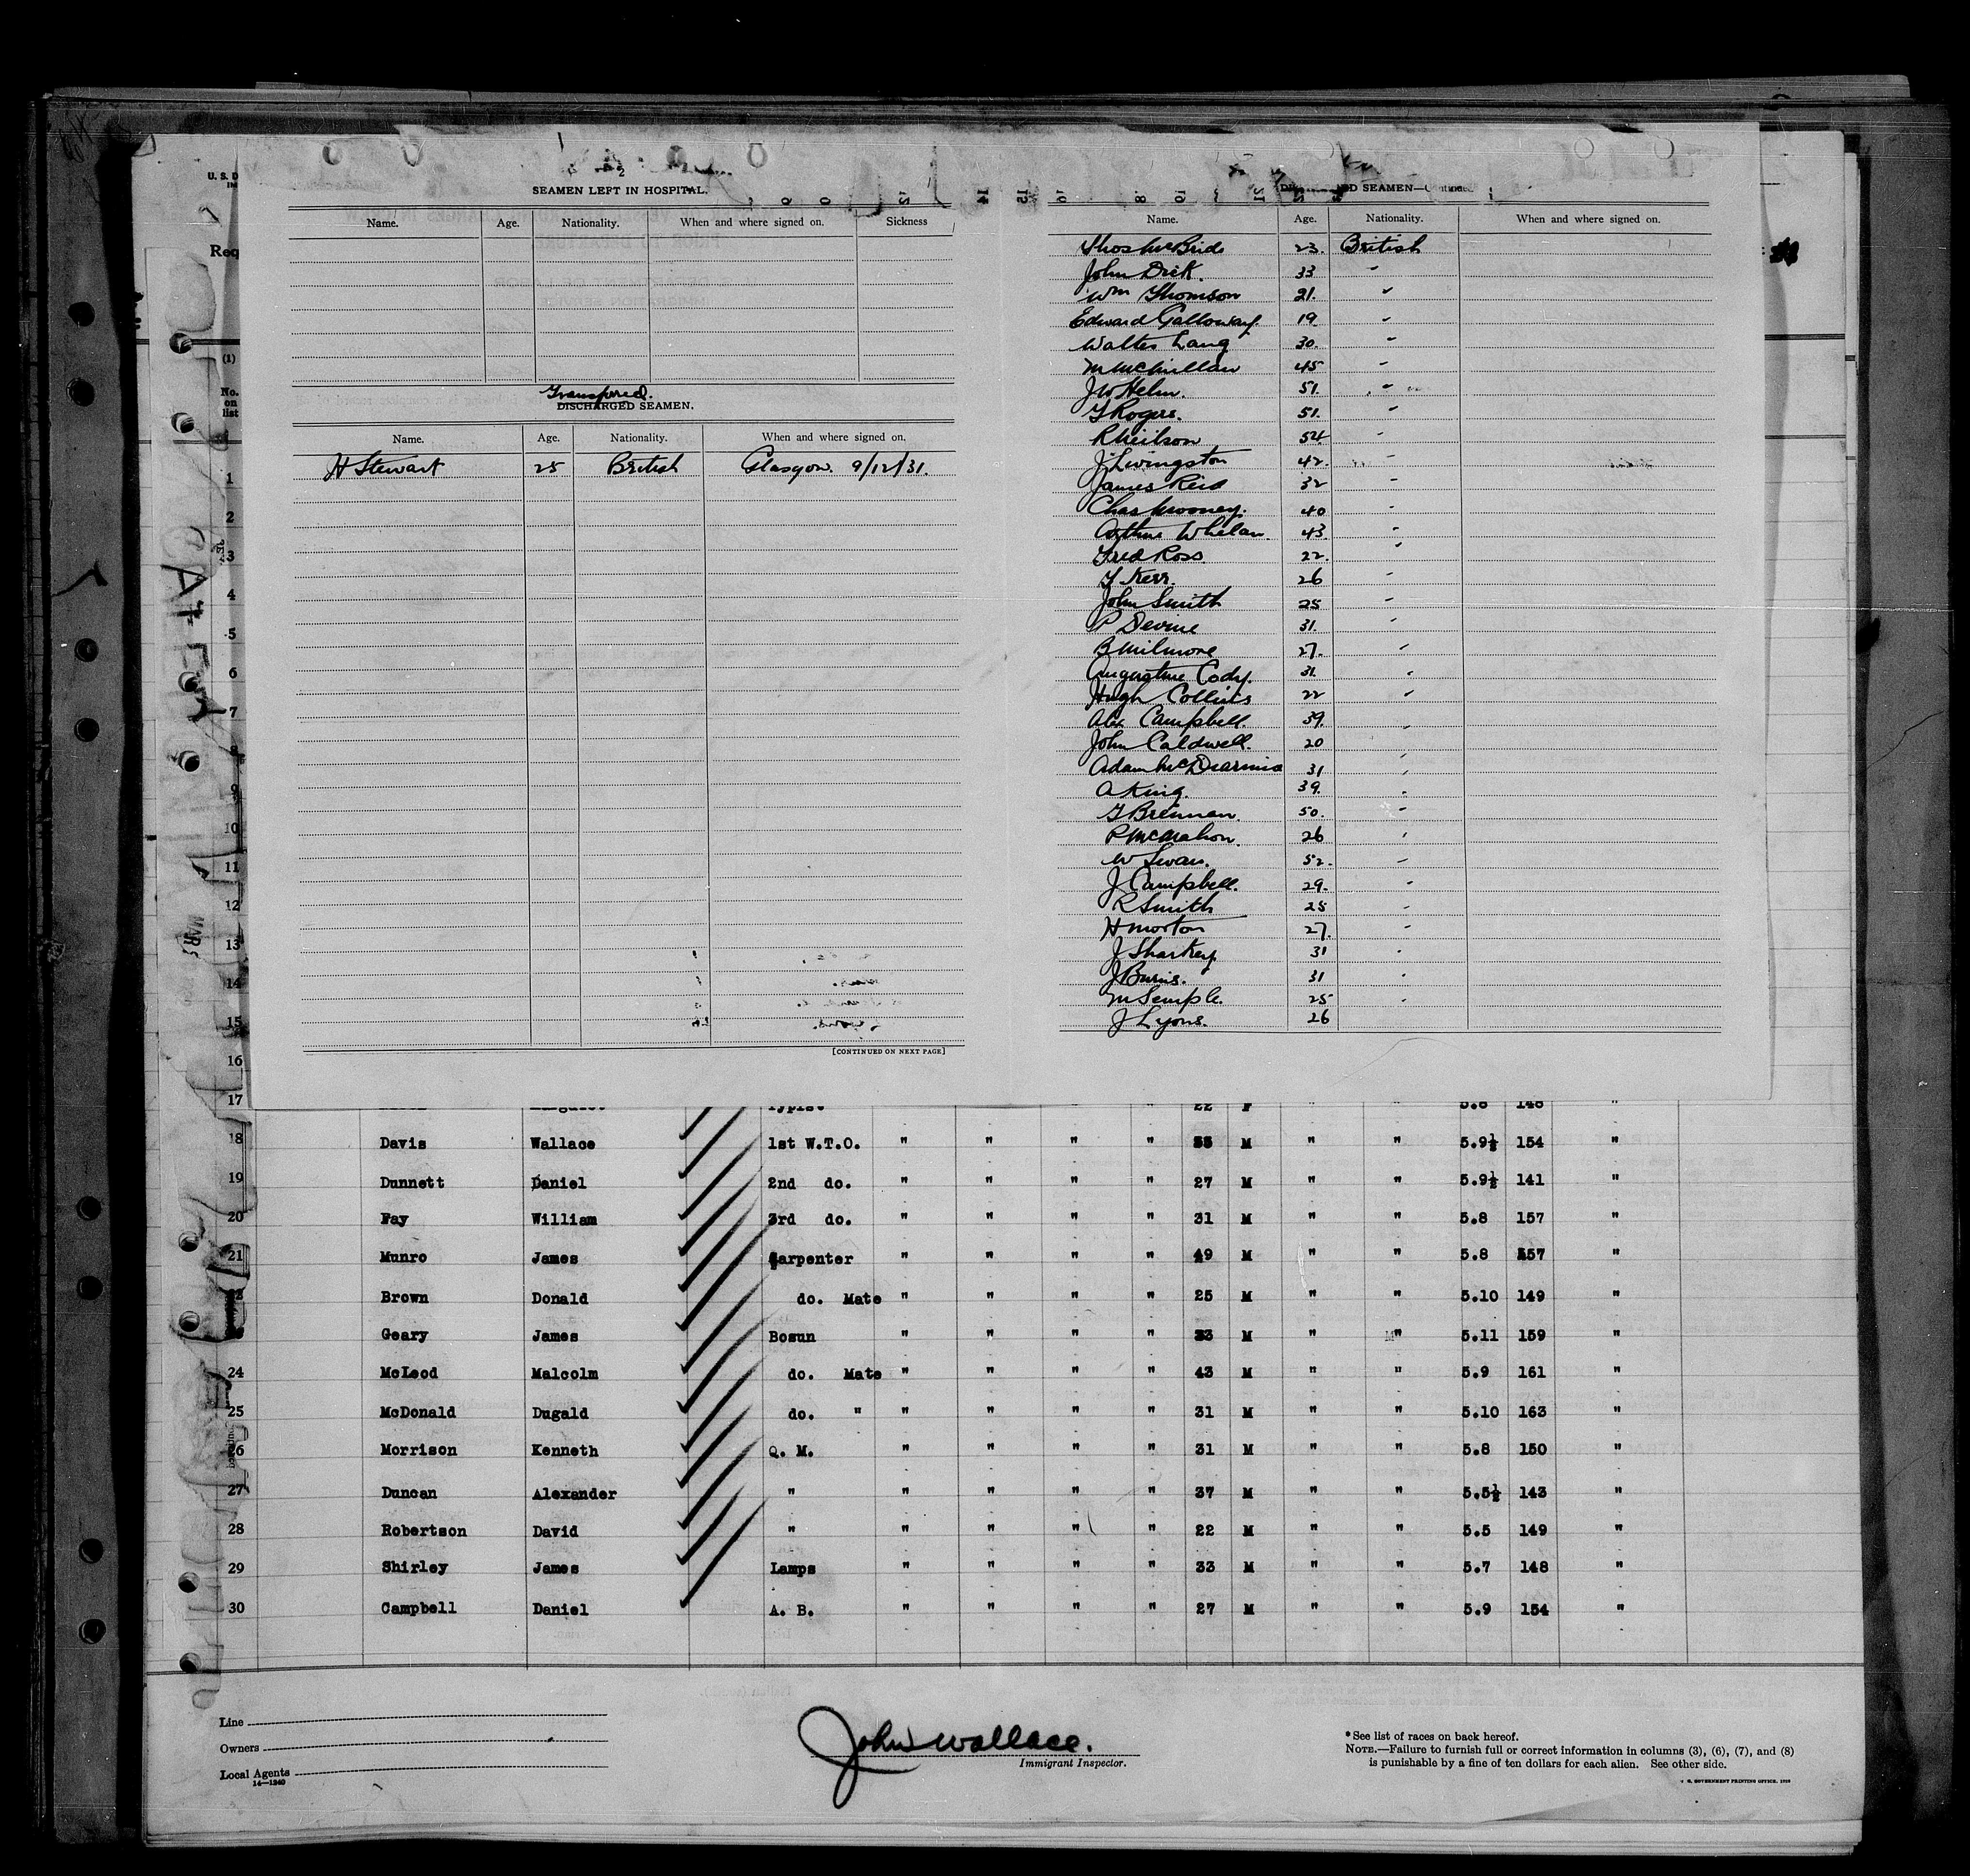 2
SEAMEN LEFT IN HOSPITAL.
Name. Age. Nationality. When and where signed on. Sickness
Transferred.
DISCHARGED SEAMEN.
Name. Age. Nationality. When and where signed on.
H Stewart 25 British Glasgow 9/12/31.
[CONTINUED ON NEXT PAGE]
SEAMEN—Continued
Name. Age. Nationality. When and where signed on.
Thos McBride 23. British
John Dick. 33 "
Wm Thomson 21. "
Edward Galloway. 19 "
Walter Lang 30. "
M McMillan 45 "
J W Helm. 51. "
T Rogers. 51. "
R Neilson 54 "
J Livingston 42. "
James Reid 32 "
Chas Mooney. 40 "
Arthur Whelan. 43. "
Fred Ross 22. "
T Kerr. 26 "
John Smith 25 "
P Devine 31. "
B Milmore 27. "
Augustine Cody. 31. "
Hugh Collins 22 "
Alex Campbell. 39. "
John Caldwell. 20 "
Adam McDiarmid 31 "
A King. 39. "
T Brennan. 50. "
P McMahon. 26 "
W Swan. 52. "
J Campbell. 29. "
R Smith 25 "
H Morton 27. "
J Sharkey 31 "
J Burns. 31 "
M Semple. 25 "
J Lyons. 26
U. S. D
Req
(1)
No. on list
1
2
3
4
5
6
7
8
9
10
11
12
13
14
15
16
17 Typist " " " " 22 F " " 5.6 148 "
18 Davis Wallace 1st W.T.O. " " " " 33 M " " 5.9½ 154 "
19 Dunnett Daniel 2nd do. " " " " 27 M " " 5.9½ 141 "
20 Fay William 3rd do. " " " " 31 M " " 5.8 157 "
21 Munro James Carpenter " " " " 49 M " " 5.8 157 "
Brown Donald do. Mate " " " " 25 M " " 5.10 149 "
Geary James Bosun " " " " 33 M " " 5.11 159 "
24 McLeod Malcolm do. Mate " " " " 43 M " " 5.9 161 "
25 McDonald Dugald do. " " " " " 31 M " " 5.10 163 "
26 Morrison Kenneth Q. M. " " " " 31 M " " 5.8 150 "
27 Duncan Alexander " " " " " 37 M " " 5.5½ 143 "
28 Robertson David " " " " " 22 M " " 5.5 149 "
29 Shirley James Lamps " " " " 33 M " " 5.7 148 "
30 Campbell Daniel A. B. " " " " 27 M " " 5.9 154 "
Line
Owners
Local Agents
14—1240
John Wallace.
Immigrant Inspector.
* See list of races on back hereof.
NOTE.—Failure to furnish full or correct information in columns (3), (6), (7), and (8)
is punishable by a fine of ten dollars for each alien. See other side.
GOVERNMENT PRINTING OFFICE.